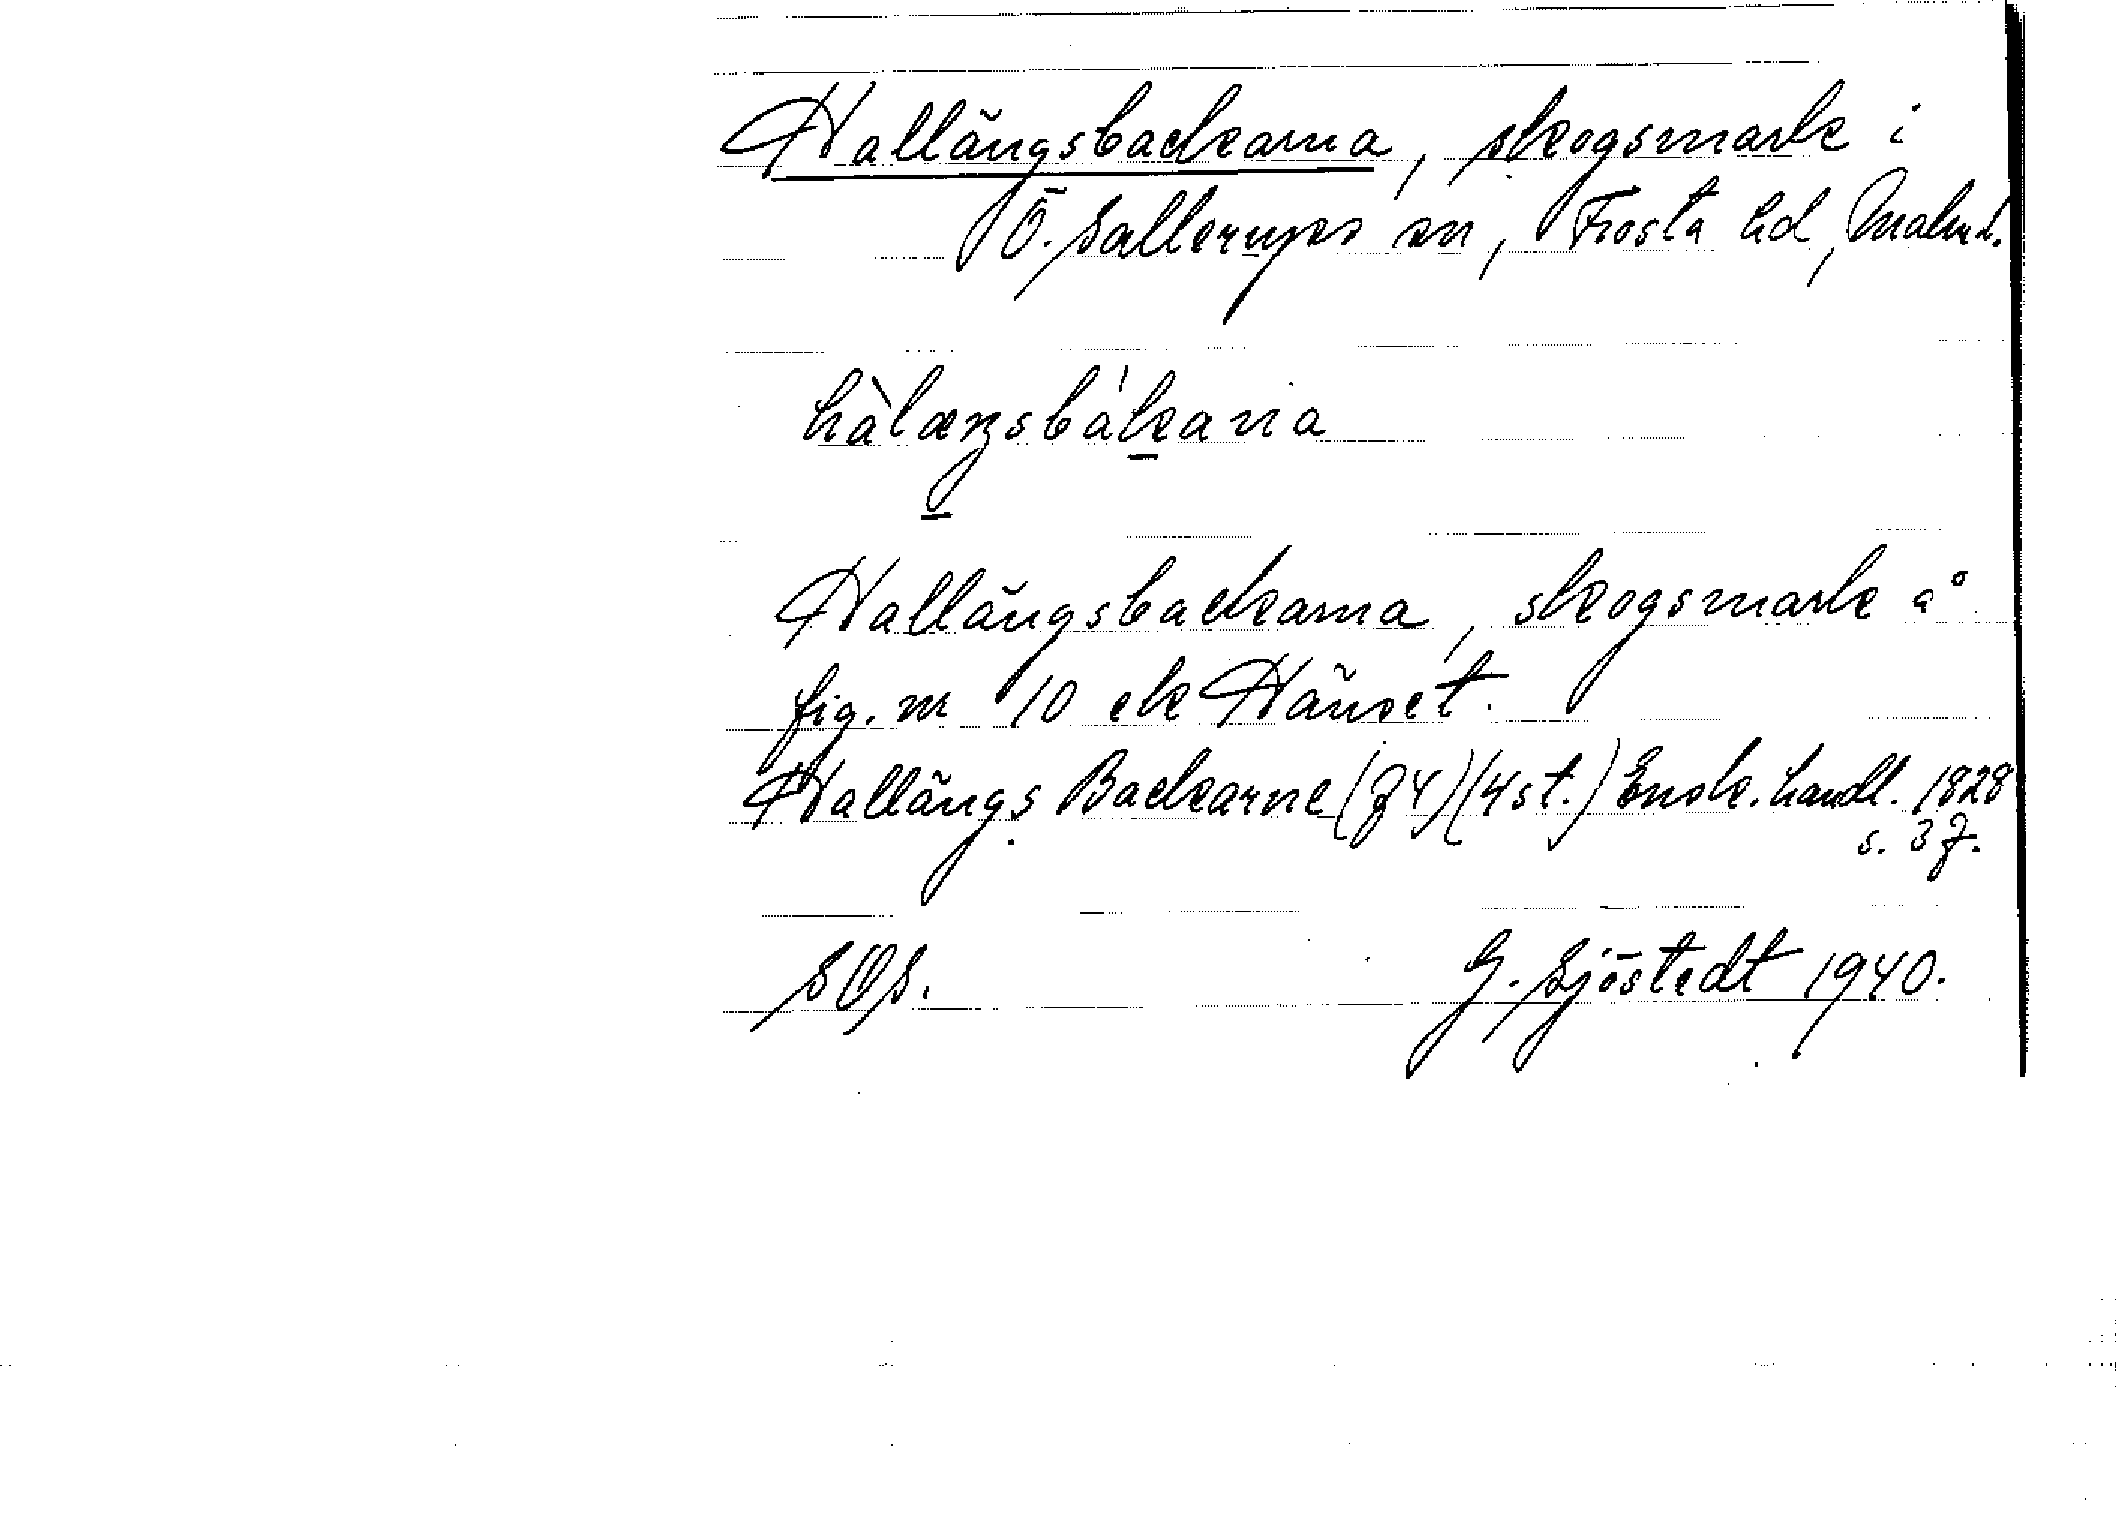 Hallängsbackarna, skogsmark i
Ö. Sallerups sn, Frosta hd, Malm.
hàlæŋsbákana
Hallängsbackarna, skogsmark å
fig. nr 10 ek Hänset.
Hallängs Backarne (74) (4 st.) Ensk. handl. 1828
s. 37.
SOS.
G. Sjöstedt 1940.